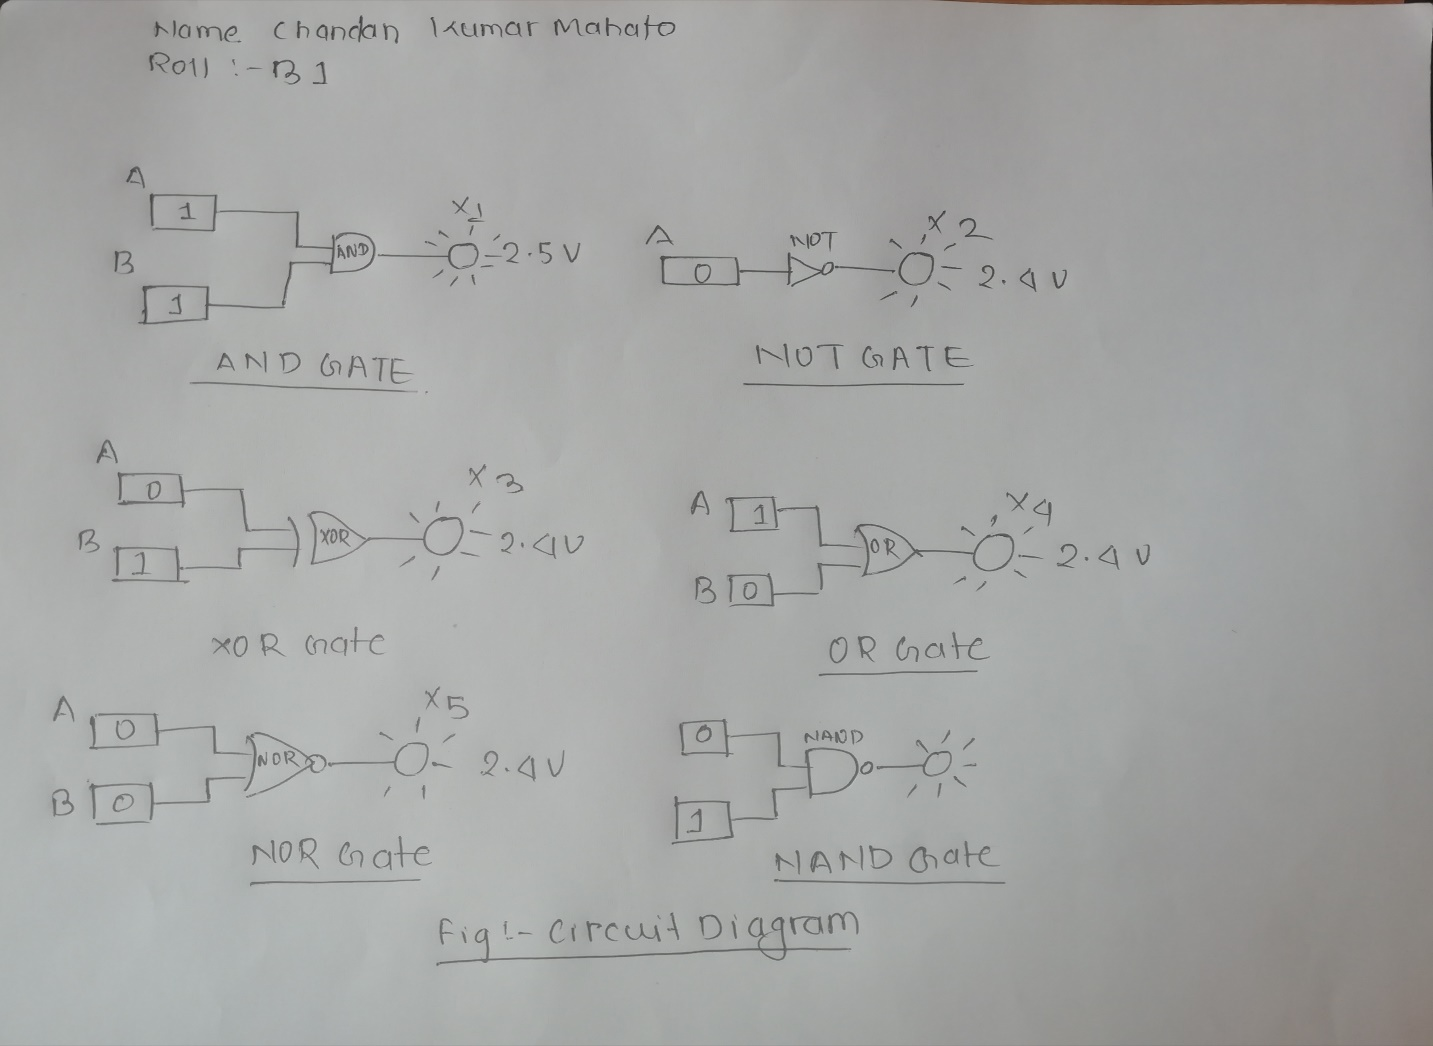 Name Chandan Kumar Mahato
Roll :- B1
A
1
X1
B
AND
2.5V
1
AND GATE
A
NOT
X2
0
2.4V
NOT GATE
A
0
X3
B
XOR
2.4V
1
XOR Gate
A
1
X4
OR
2.4V
B 0
OR Gate
A
0
X5
NOR
2.4V
B 0
NOR Gate
0
NAND
1
NAND Gate
Fig:- Circuit Diagram